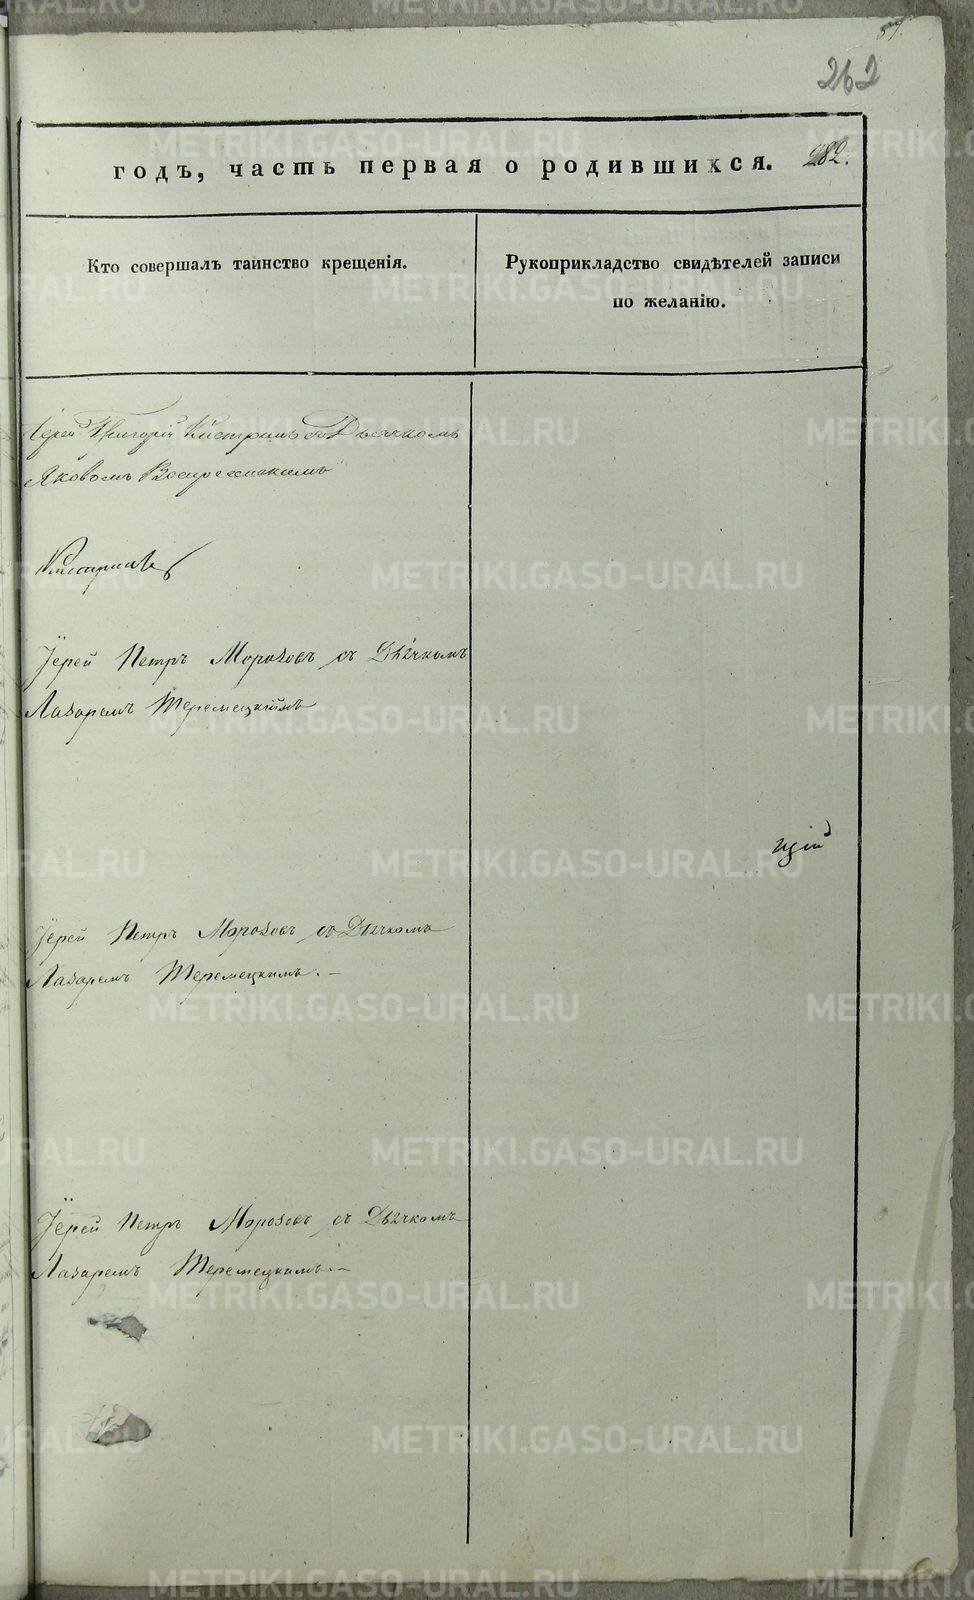 57.
262
годъ, часть первая о родившихся. 282.
Кто совершалъ таинство крещенія.
Рукоприкладство свидѣтелей записи
по желанію.
Іерей Григорій Кистринъ съ Дьячкомъ
Яковомъ Воскресенскимъ
Іерей Петръ Морозовъ съ Дьячкомъ
Лазаремъ Теремецкіимъ
щій
Іерей Петръ Морозовъ съ Дьячкомъ
Лазаремъ Теремецкимъ. –
Іерей Петръ Морозовъ съ Дьячкомъ
Лазаремъ Теремецкимъ. –
METRIKI.GASO-URAL.RU